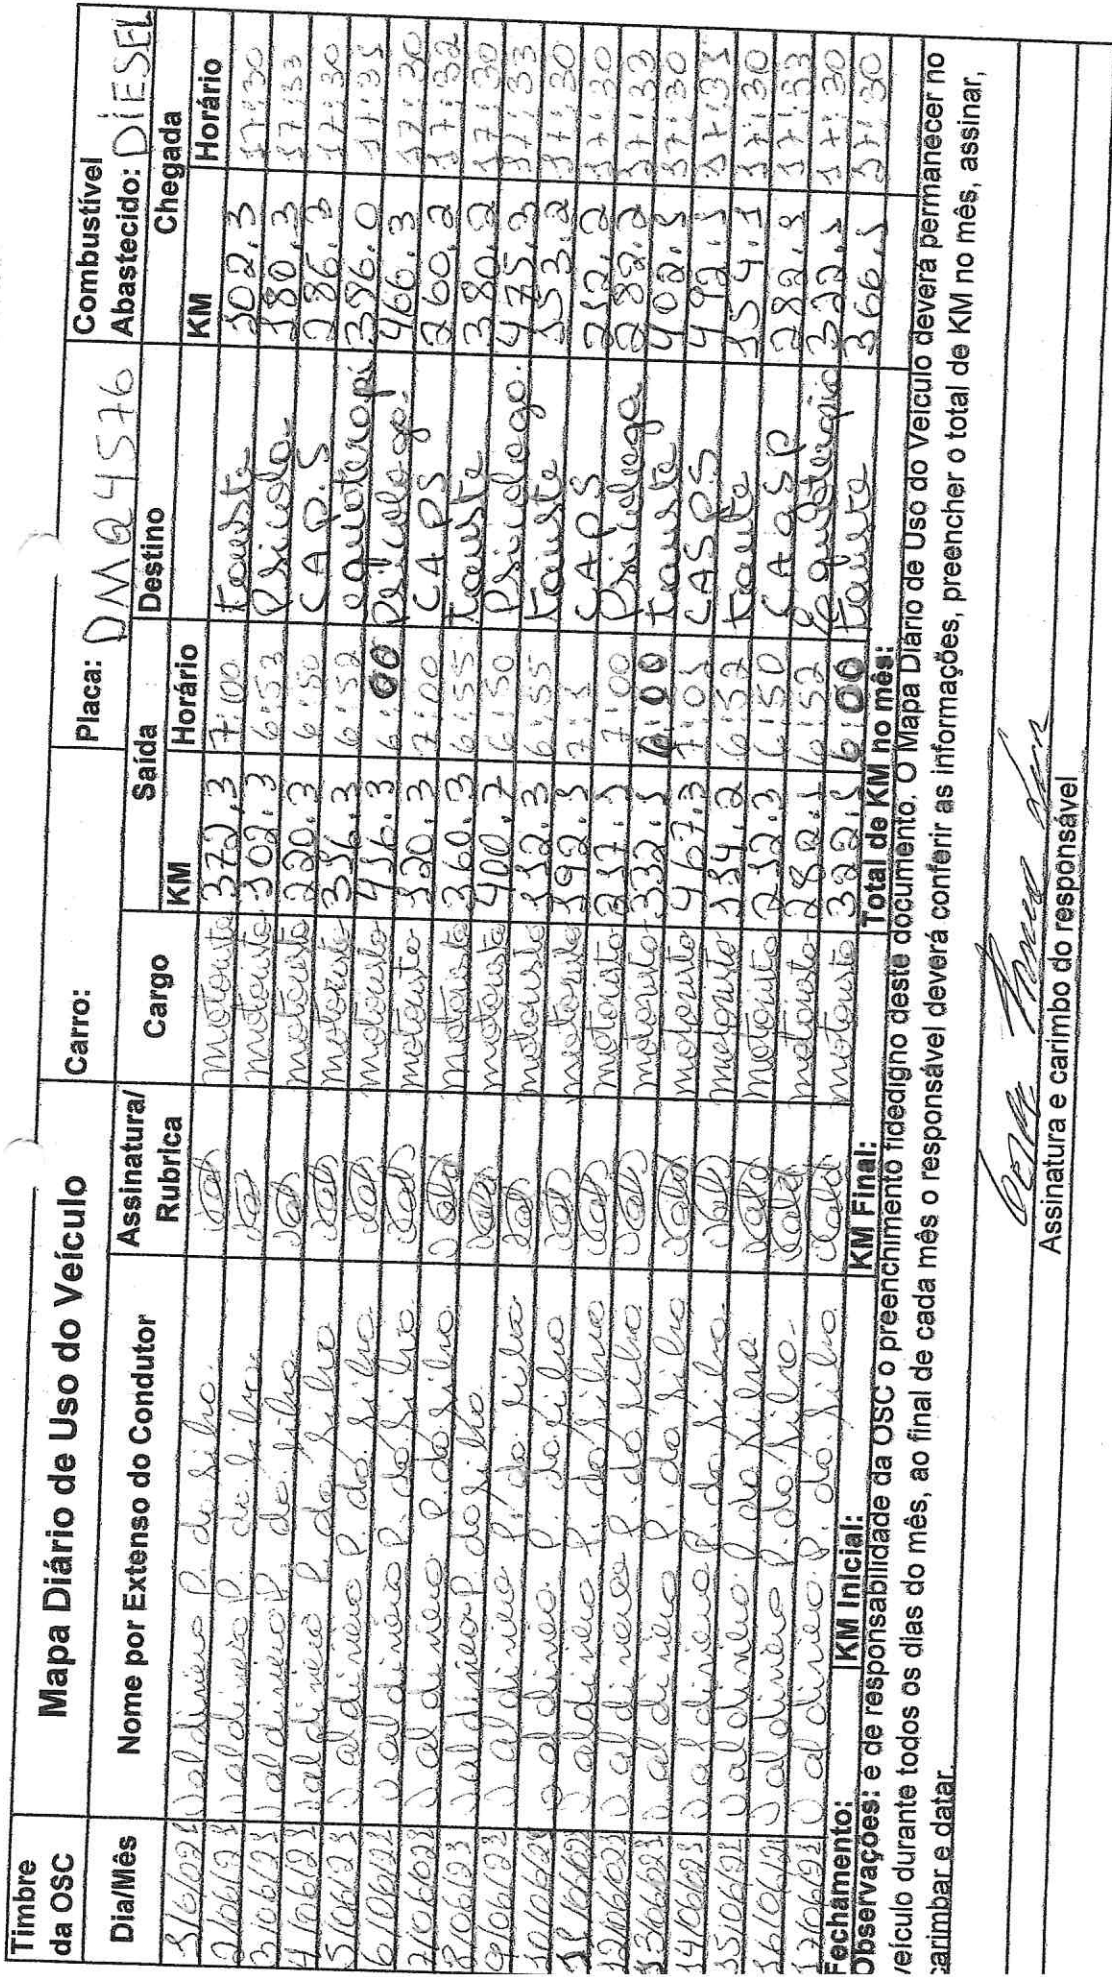 Timbre da OSC Mapa Diário de Uso do Veículo Carro: Placa: DMQ 4576 Combustível Abastecido: DIESEL
Dia/Mês Nome por Extenso do Condutor Assinatura/ Rubrica Cargo Saída Destino Chegada
KM Horário KM Horário
Valdineio P. da Silva motorista 372,3 7:00 tauste 102.3 17:30
2/06/23 Valdineio P. da Silva motorista 102.3 6:53 Psicolo 180.3 17:33
3/06/23 Valdineio P. da Silva motorista 220.3 6:50 CAP.S 286.3 17:30
4/06/23 Valdineio P. da Silva motorista 316.3 6:52 equoterapi 396.0 17:35
5/06/23 Valdineio P. da Silva motorista 416.3 6:00 Psicologo 466.3 17:30
6/06/23 Valdineio P. da Silva motorista 120.3 7:00 CAPS 260.2 17:32
7/06/023 Valdineio P. da Silva motorista 360.3 6:55 tauste 380.2 17:30
8/06/23 Valdineio P. da Silva motorista 400.7 6:50 Psicologo. 475.3 17:33
9/06/23 Valdineio P. da Silva motorista 112.3 6:55 tauste 153.2 17:30
10/06/23 Valdineio P. da Silva motorista 192.1 CAPS 212.2 17:30
Valdineio P. da Silva motorista 217.1 7:00 Psicologa 282.2 17:33
12/06/023 Valdineio P. da Silva motorista 332.1 6:00 tauste 402.1 17:30
13/06/023 Valdineio P. da Silva motorista 467.3 7:01 CASPS 492.1 17:35
14/06/23 Valdineio P. da Silva motorista 134.2 6:52 tauste 154.1 17:30
15/06/23 Valdineio P. da Silva motorista 212.3 6:50 CAQSP 282.1 17:33
16/06/23 Valdineio P. da Silva motorista 282.1 6:52 Equoterapia 322.1 17:30
17/06/23 Valdineio P. da Silva motorista 322.1 6:00 tauste 366.1 17:30
Fechamento: KM Inicial: KM Final: Total de KM no mês:
Observações: e de responsabilidade da OSC o preenchimento fidedigno deste documento. O Mapa Diário de Uso do Veículo deverá permanecer no
veículo durante todos os dias do mês, ao final de cada mês o responsável deverá conferir as informações, preencher o total de KM no mês, assinar,
carimbar e datar.
Assinatura e carimbo do responsável